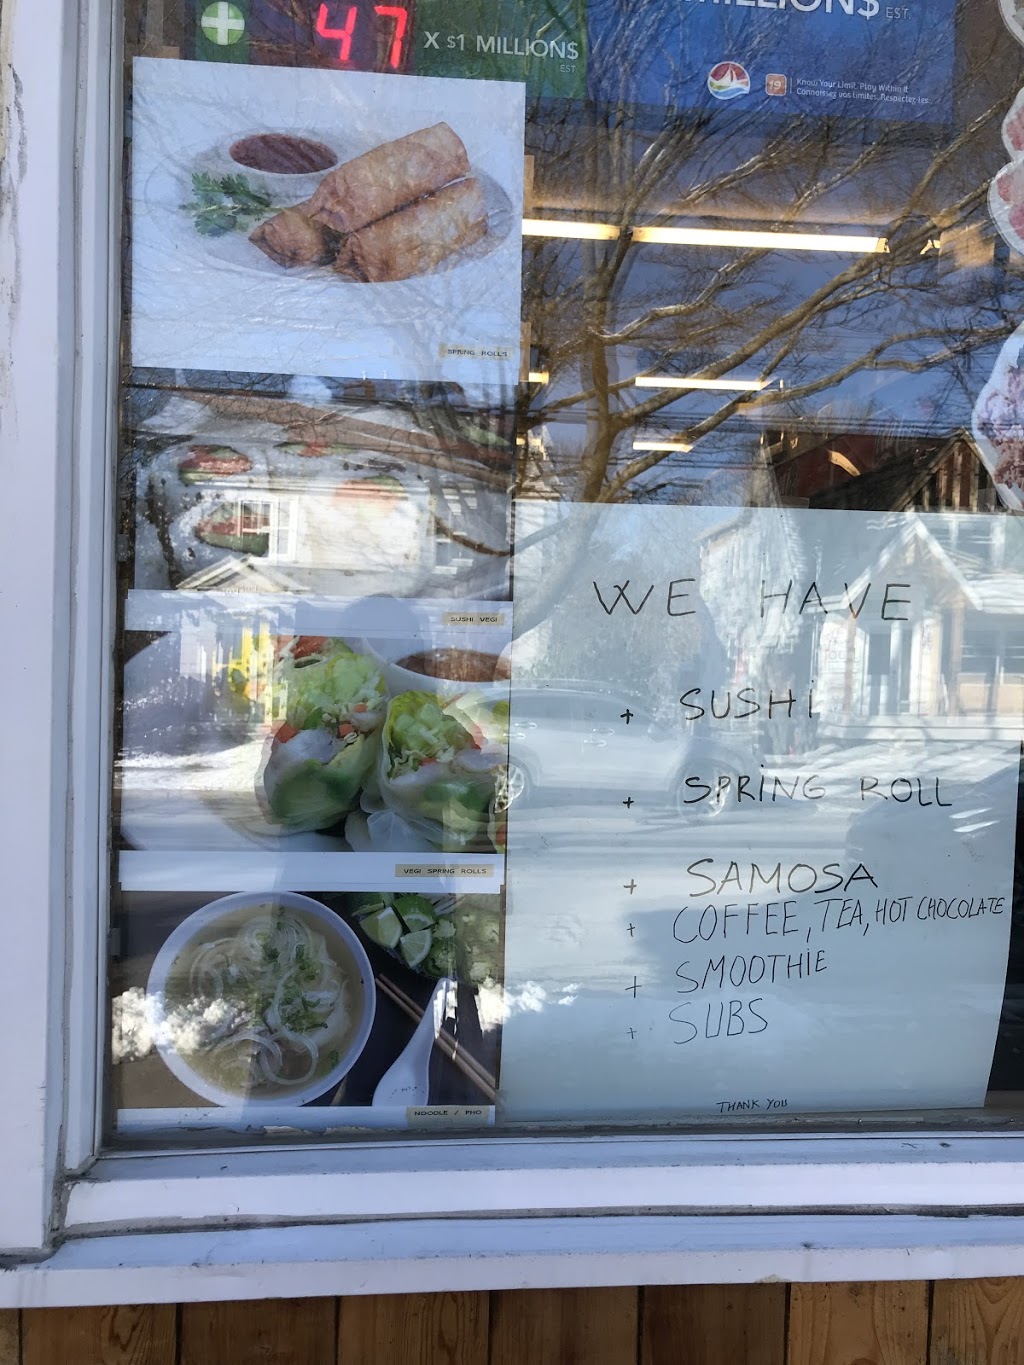 MILLION$ EST.
47 X $1 MILLION$
EST
19+
Know Your Limit. Play Within It.
Connaissez vos limites. Respectez-les.
SPRING ROLLS
SUSHI VEGI
VEGI SPRING ROLLS
NOODLE / PHO
WE HAVE
+ SUSHI
+ SPRING ROLL
+ SAMOSA
+ COFFEE, TEA, HOT CHOCOLATE
+ SMOOTHIE
+ SUBS
THANK YOU